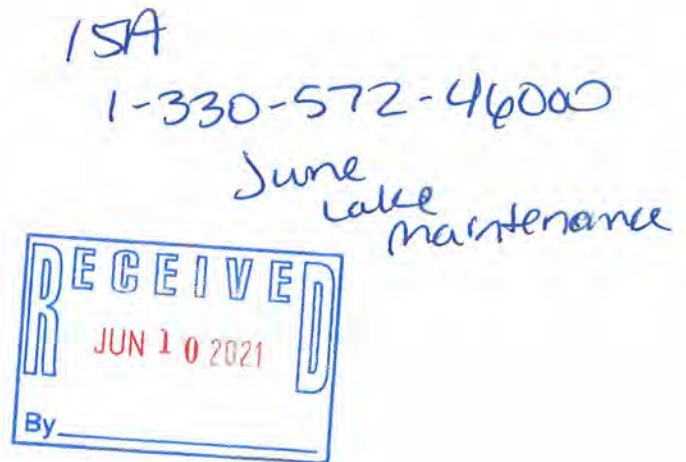 15A
1-330-572-46000
June
Lake
Maintenance
RECEIVED
JUN 10 2021
By